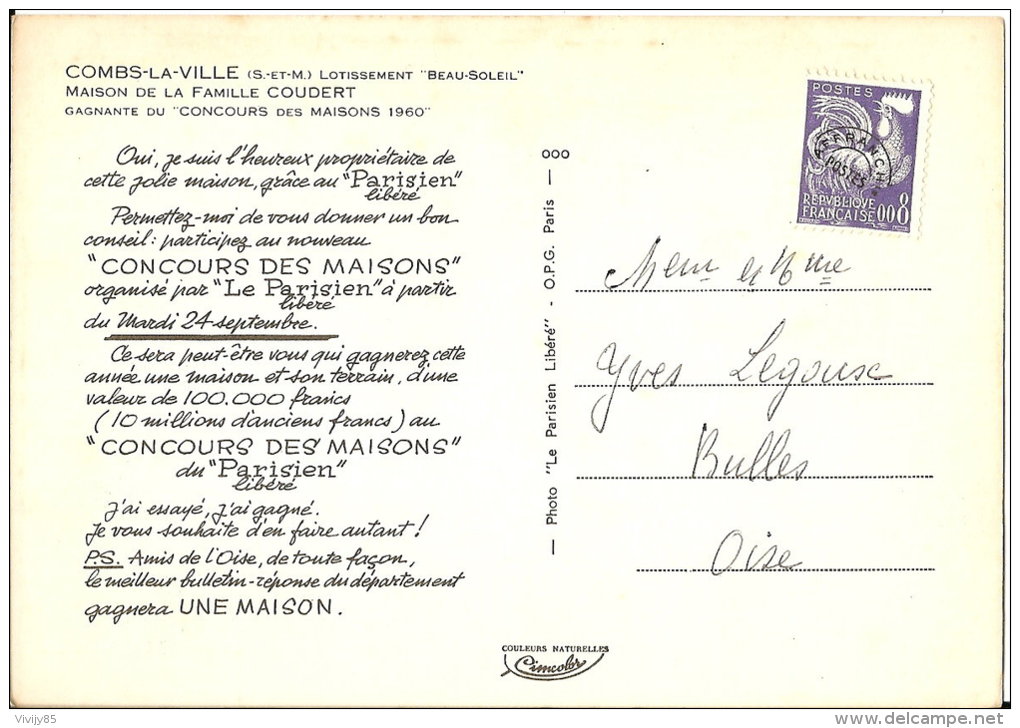 COMBS-LA-VILLE (S.-ET-M.) LOTISSEMENT "BEAU-SOLEIL"
MAISON DE LA FAMILLE COUDERT
GAGNANTE DU "CONCOURS DES MAISONS 1960"
Oui, je suis l'heureux propriétaire de
cette jolie maison, grâce au "Parisien"
libéré
Permettez-moi de vous donner un bon
conseil : participez au nouveau
"CONCOURS DES MAISONS"
organisé par "Le Parisien" à partir
libéré
du Mardi 24 septembre.
Ce sera peut-être vous qui gagnerez cette
année une maison et son terrain, d'une
valeur de 100.000 francs
(10 millions d'anciens francs) au
"CONCOURS DES MAISONS"
du "Parisien"
libéré
J'ai essayé, j'ai gagné.
Je vous souhaite d'en faire autant !
P.S. Amis de l'Oise, de toute façon,
le meilleur bulletin-réponse du département
gagnera UNE MAISON.
— Photo "Le Parisien Libéré" - O.P.G. Paris — 000
COULEURS NATURELLES
Cimcolor
POSTES
AFFRANCHts
POSTES
REPVBLIQVE
FRANÇAISE 0,08
Mme
Yves Legouse
Bulles
Oise
Vivijy85
delcampe.net